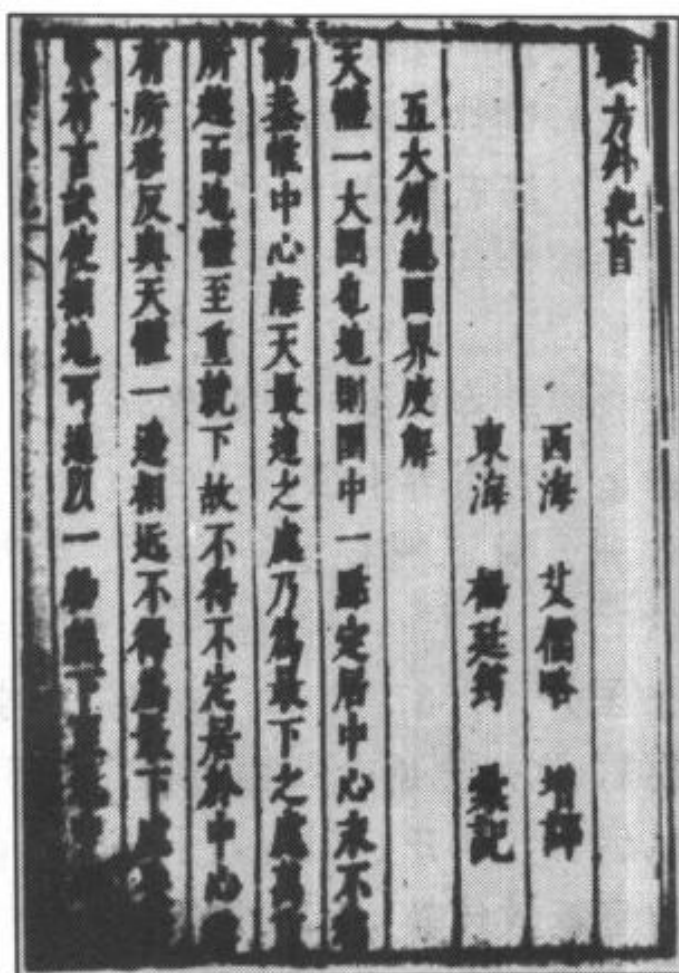 職方外紀首
西海 艾儒略 增譯
東海 楊廷筠 彙記
五大州總圖界度解
天體一大圜也地則圜中一點定居中心永不
動蓋惟中心離天最遠之處乃爲最下之處萬
所趨而地體至重就下故不得不定居於中心
有所移反與天體一邊相近不得爲最下處矣
賢有言試使掘地可通以一物縋下至地